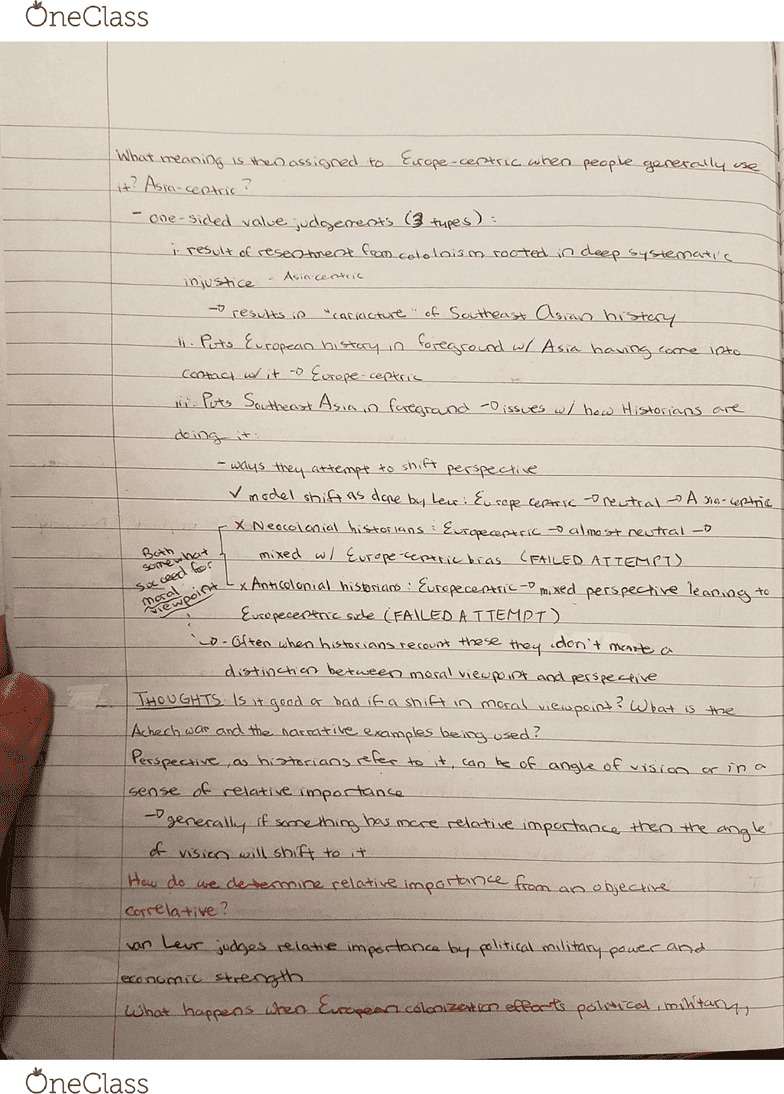 OneClass
What meaning is then assigned to Europe-centric when people generally use
it? Asia-centric?
- one-sided value judgements (3 types) :
i. result of resentment from cololnism rooted in deep systematic
injustice - Asiacentric
→ results in "cariacture" of Southeast Asian history
ii. Puts European history in foreground w/ Asia having come into
contact w/ it → Europe-centric
iii. Puts Southeast Asia in foreground → issues w/ how Historians are
doing it:
- ways they attempt to shift perspective
✓ model shift as done by Leur: Europe centric → neutral → Asia-centric
x Neocolonial historians : Europecentric → almost neutral →
mixed w/ Europe-centric bias (FAILED ATTEMPT)
Both
somewhat
succeed for
moral
viewpoint
x Anticolonial historians : Europecentric → mixed perspective leaning to
Europecentric side (FAILED ATTEMPT)
↳ - Often when historians recount these they don't make a
distinction between moral viewpoint and perspective
THOUGHTS: Is it good or bad if a shift in moral viewpoint? What is the
Achech war and the narrative examples being used?
Perspective, as historians refer to it, can be of angle of vision or in a
sense of relative importance
→ generally if something has more relative importance then the angle
of vision will shift to it
How do we determine relative importance from an objective
correlative?
van Leur judges relative importance by political military power and
economic strength
What happens when European colonization efforts political, military,
OneClass